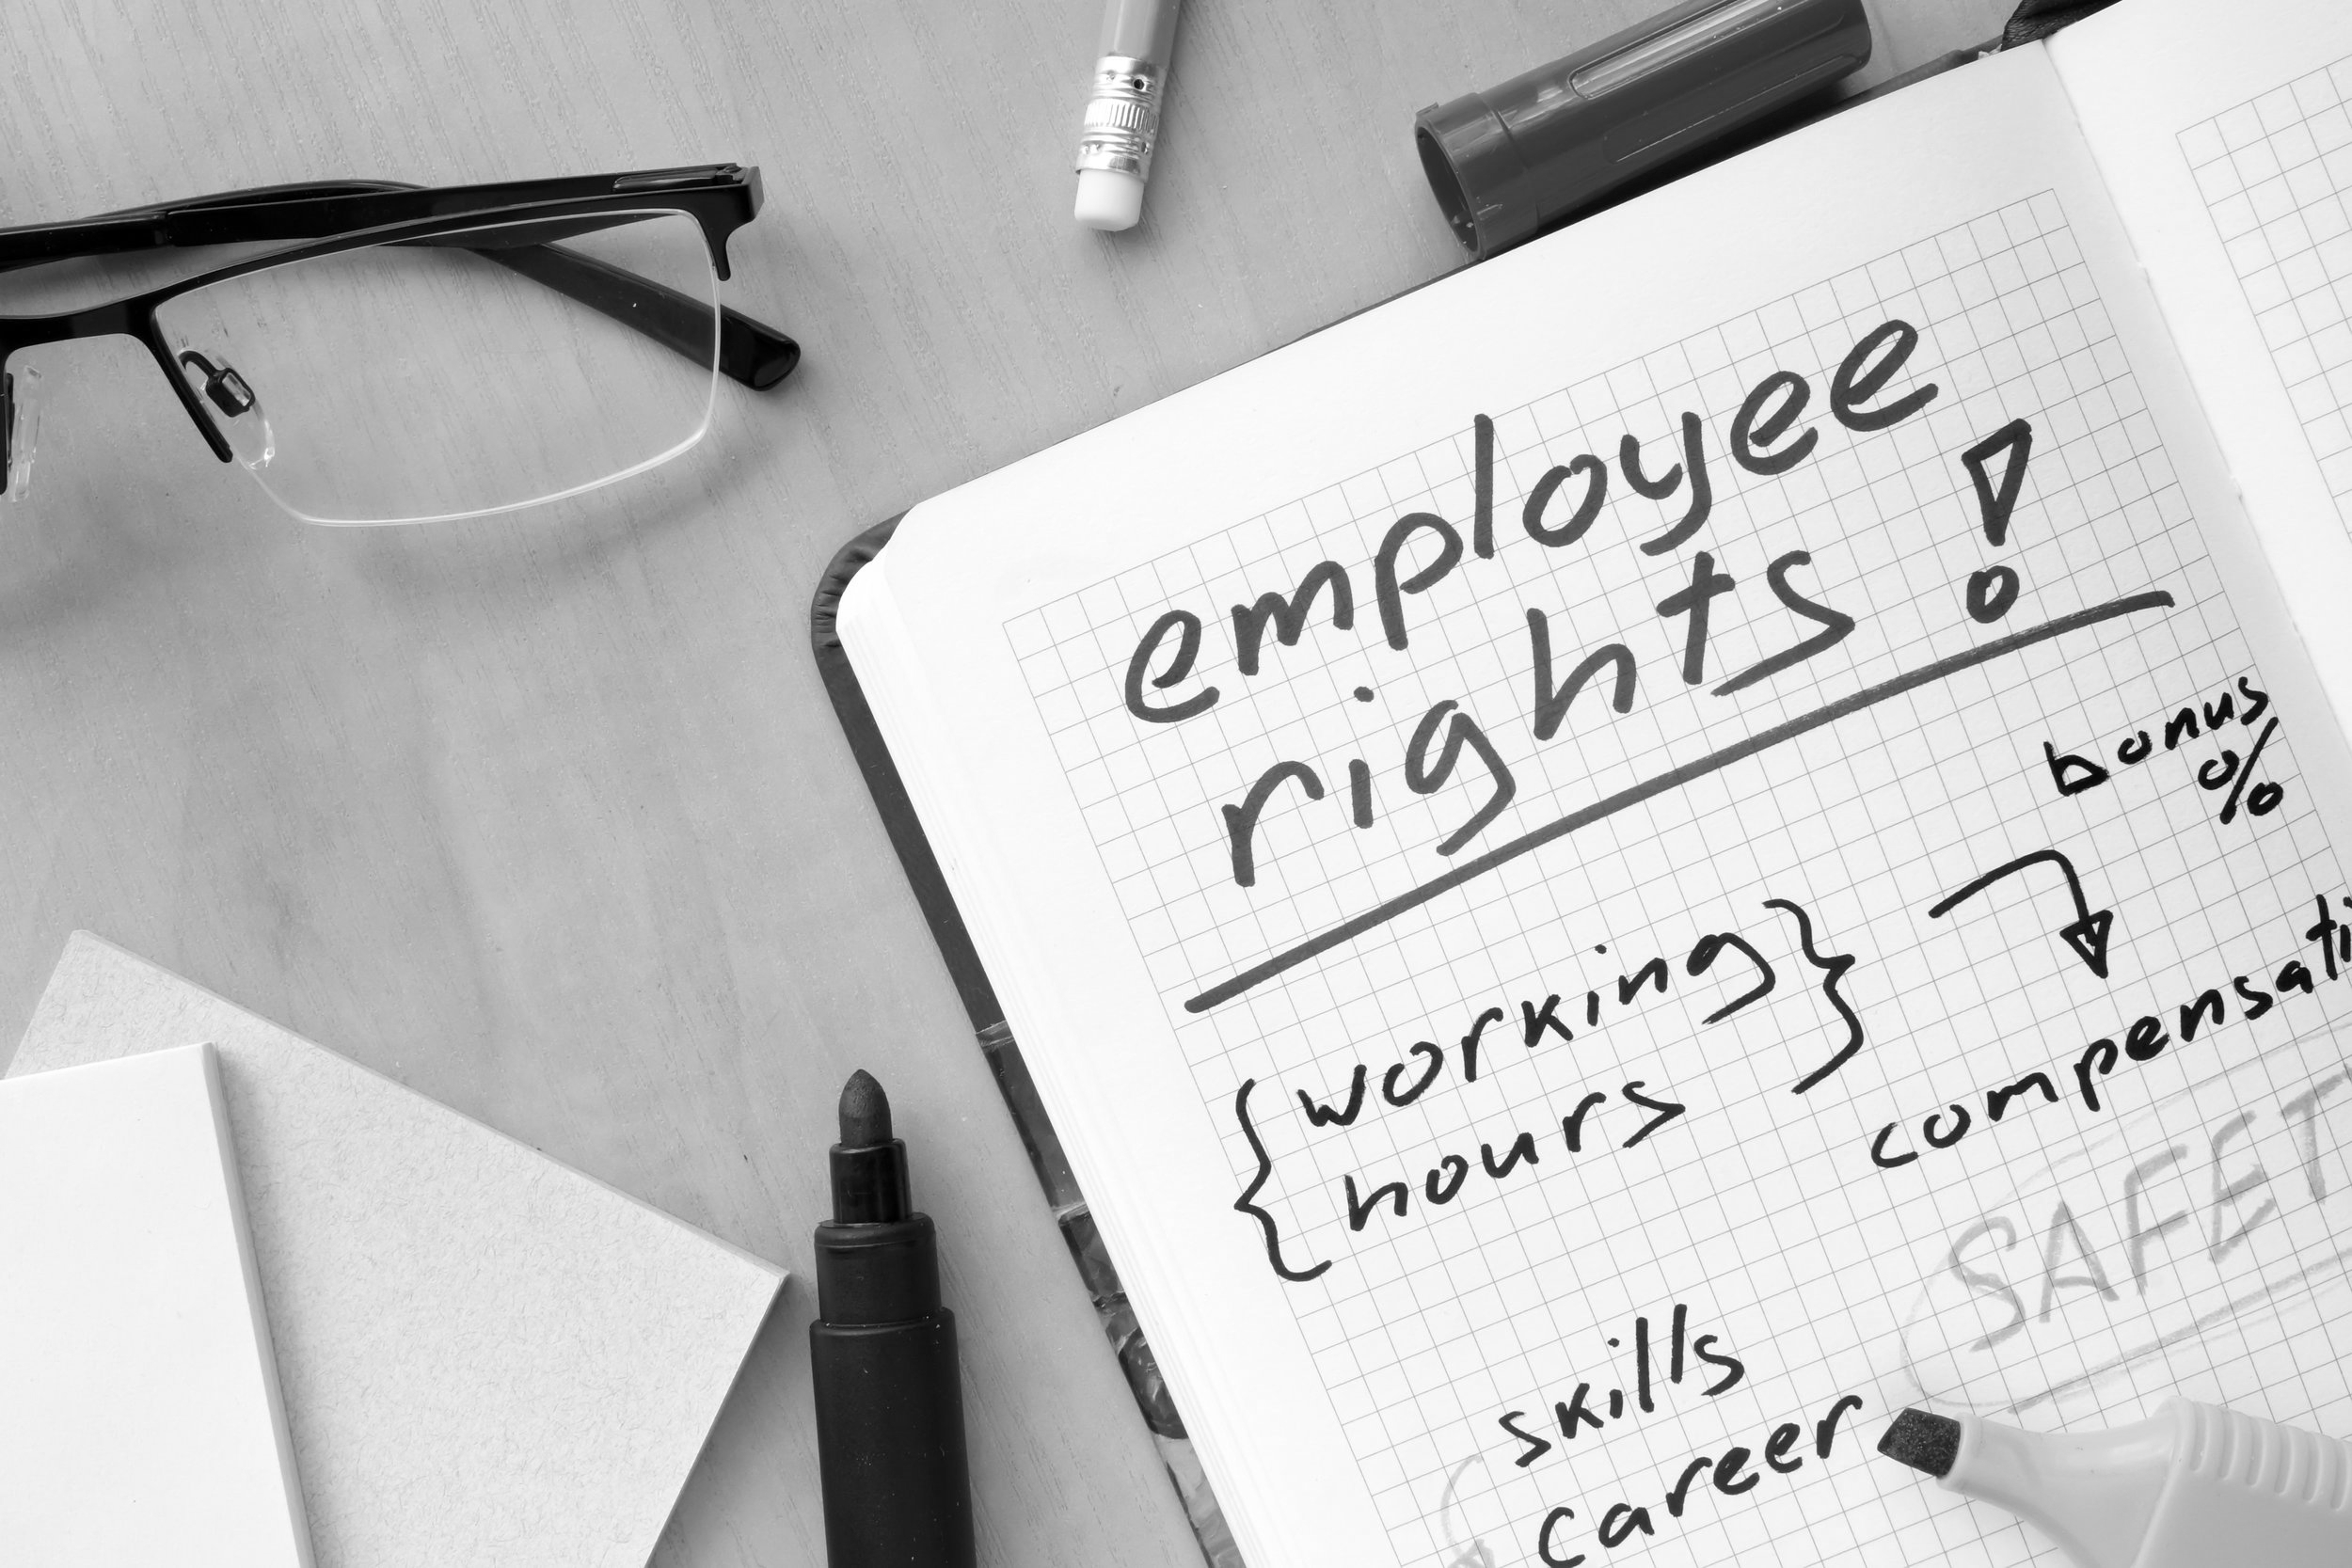 employee
rights!
bonus
%
{working
hours}
compensati
SAFET
skills
career